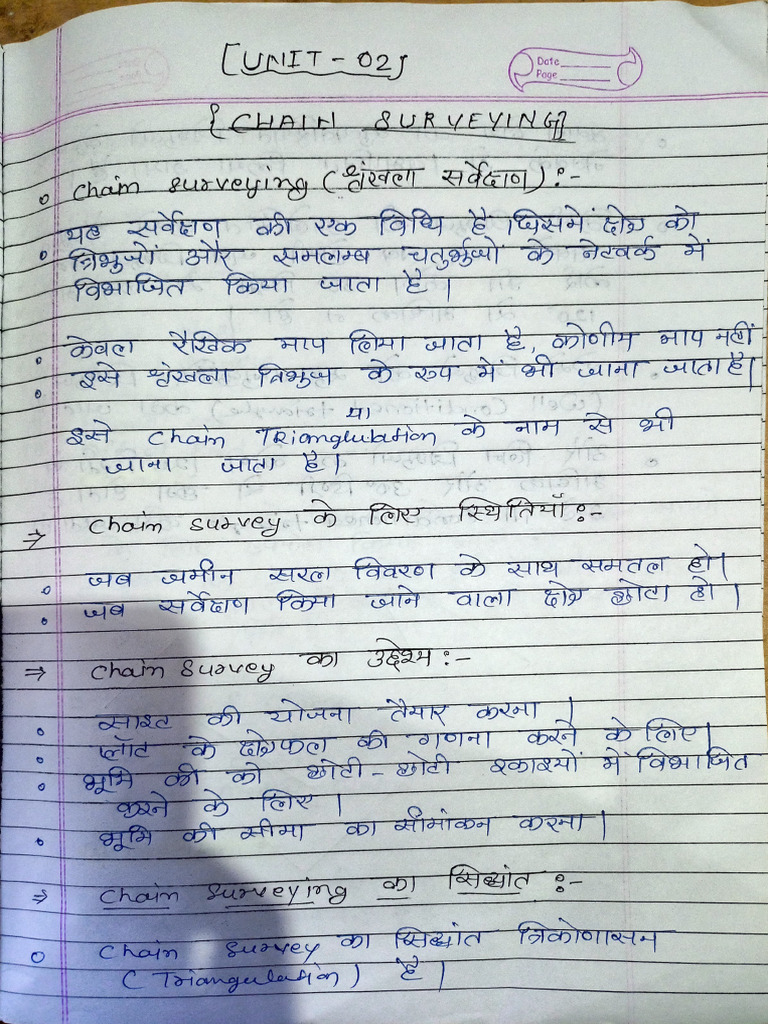 [UNIT - 02]
Date
Page
{CHAIN SURVEYING}
Chain surveying (श्रृंखला सर्वेक्षण) :-
यह सर्वेक्षण की एक विधि है जिसमें क्षेत्र को
त्रिभुजों और समलम्ब चतुर्भुजों के नेटवर्क में
विभाजित किया जाता है।
केवल रैखिक माप लिया जाता है, कोणीय माप नहीं
इसे श्रृंखला त्रिभुज के रूप में भी जाना जाता है।
या
इसे Chain Triangulation के नाम से भी
जाना जाता है।
⇒ Chain survey के लिए स्थितियाँ :-
जब जमीन सरल विवरण के साथ समतल हो।
जब सर्वेक्षण किया जाने वाला क्षेत्र छोटा हो।
⇒ Chain Survey का उद्देश्य :-
साइट की योजना तैयार करना।
प्लॉट के क्षेत्रफल की गणना करने के लिए।
भूमि की को छोटी - छोटी इकाइयों में विभाजित
करने के लिए।
भूमि की सीमा का सीमांकन करना।
⇒ Chain Surveying का सिद्धांत :-
Chain survey का सिद्धांत त्रिकोणासन
(Triangulation) है।